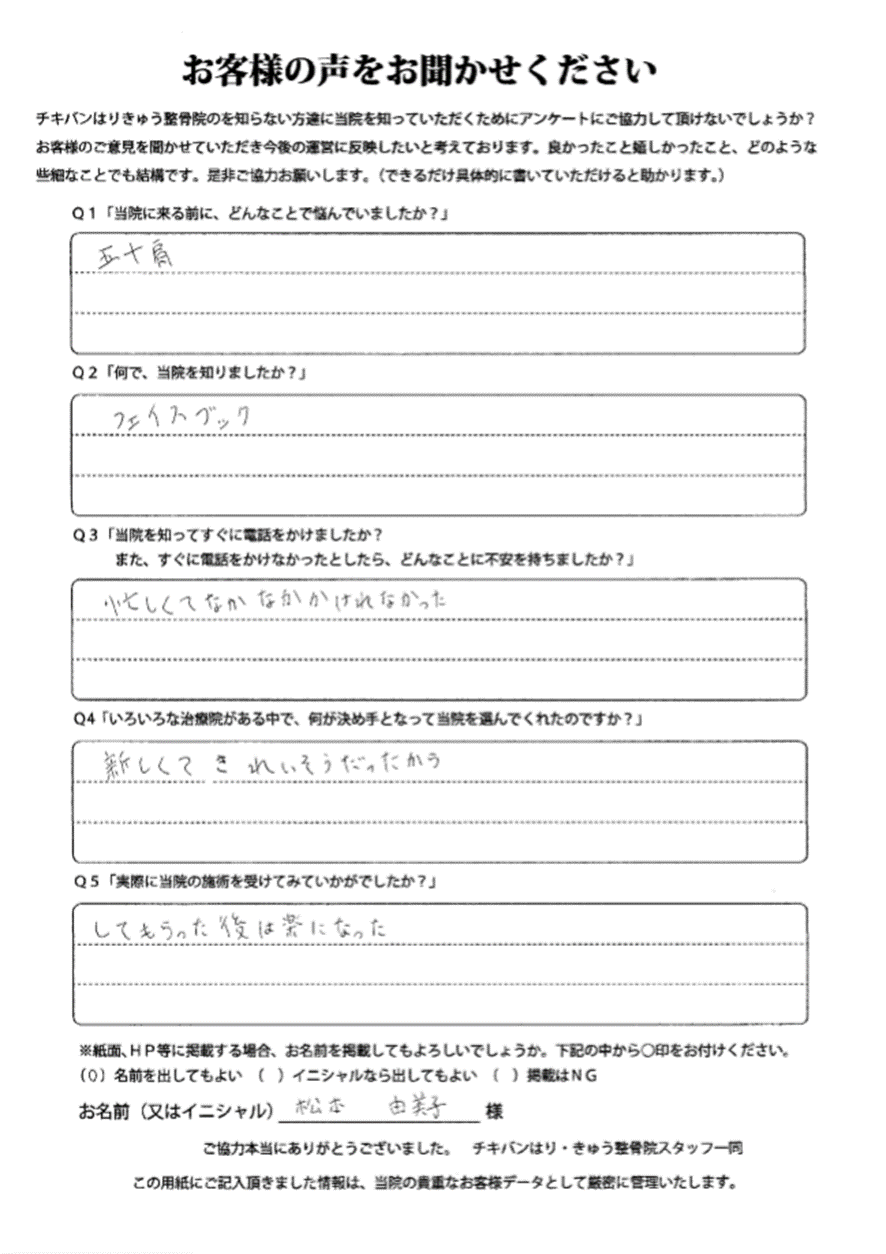 お客様の声をお聞かせください
チキバンはりきゅう整骨院のを知らない方達に当院を知っていただくためにアンケートにご協力して頂けないでしょうか？
お客様のご意見を聞かせていただき今後の運営に反映したいと考えております。良かったこと嬉しかったこと、どのような
些細なことでも結構です。是非ご協力お願いします。（できるだけ具体的に書いていただけると助かります。）
Ｑ１「当院に来る前に、どんなことで悩んでいましたか？」
五十肩
Ｑ２「何で、当院を知りましたか？」
フェイスブック
Ｑ３「当院を知ってすぐに電話をかけましたか？
また、すぐに電話をかけなかったとしたら、どんなことに不安を持ちましたか？」
忙しくてなかなかかけれなかった
Q4「いろいろな治療院がある中で、何が決め手となって当院を選んでくれたのですか？」
新しくてきれいそうだったから
Ｑ５「実際に当院の施術を受けてみていかがでしたか？」
してもらった後は楽になった
※紙面、ＨＰ等に掲載する場合、お名前を掲載してもよろしいでしょうか。下記の中から〇印をお付けください。
（○）名前を出してもよい （ ）イニシャルなら出してもよい （ ）掲載はＮＧ
お名前（又はイニシャル） 松本 由美子 様
ご協力本当にありがとうございました。 チキバンはり・きゅう整骨院スタッフ一同
この用紙にご記入頂きました情報は、当院の貴重なお客様データとして厳密に管理いたします。